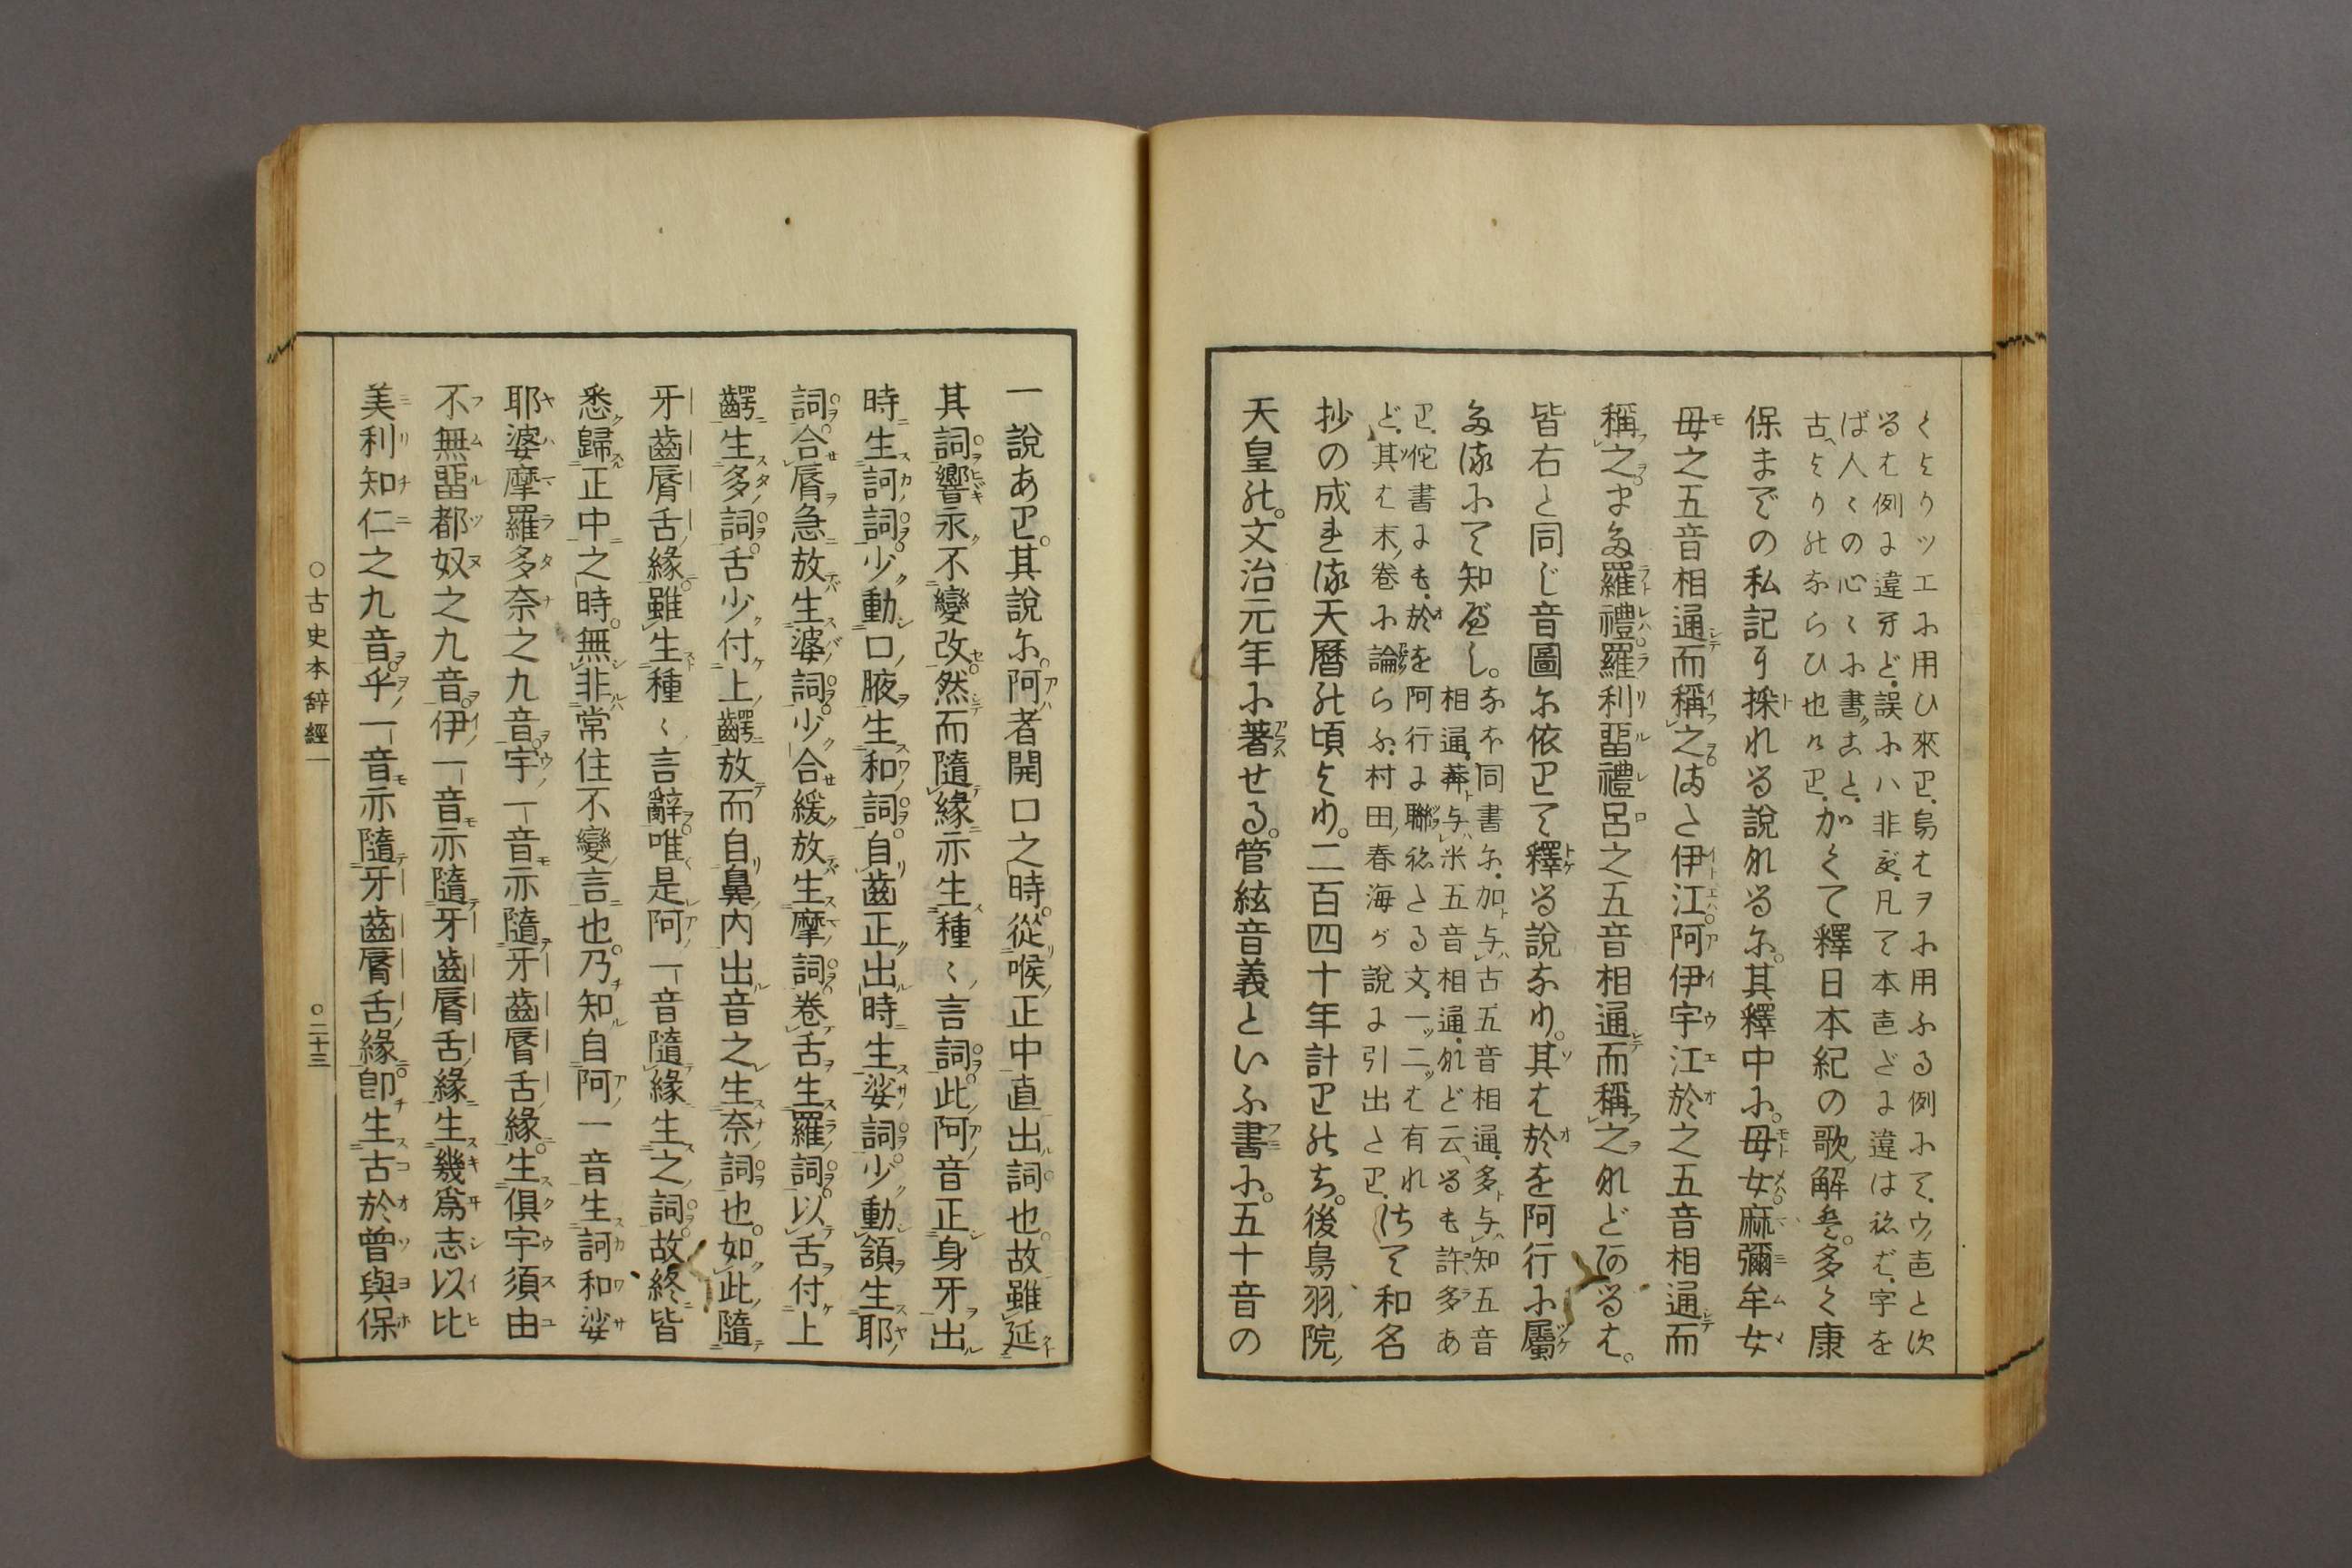 くよりツエに用ひ來れり烏はヲに用ふる例にて、ウノ音と次
るは例に違ひど誤には非ず、凡て本音だに違はねば、字を
ば人〻の心〻に書しこと、
古よりのならひ也けり、かくて釋日本紀の歌ノ解も多く康
保までの私記を採れる說なるに、其釋中に、毋女麻彌牟女
毋之五音相通而稱之また伊江阿伊宇江於之五音相通而
稱之また羅禮羅利畱禮呂之五音相通而稱之などあるは、
皆右と同じ音圖に依りて釋る說なり。其は於を阿行に屬
たるにて知べし。なほ同書に、加与古五音相通、多与知五音
相通、莽与米五音相通、など云るも許多あ
り、佗書にも、於を阿行に聯ねたる文、一ッ二ッは有れ
ど、其は末ノ卷に論らふ、村田ノ春海が說に引出たり、さて和名
抄の成れる天曆の頃より。二百四十年計りのち。後鳥羽ノ院ノ
天皇の。文治元年に著せる。管絃音義といふ書に。五十音の
一說あり。其說に。阿者開口之時。從喉正中直出詞也。故雖延
其詞響永不變改然而隨緣亦生種〻言詞此阿音正身牙出
時生訶詞少動口腋生和詞自齒正出時生娑詞少動頷生耶
詞合脣急放生婆詞少合緩放生摩詞卷舌生羅詞以舌付上
齶生多詞舌少付上齶放而自鼻内出音之生奈詞也如此隨
牙齒脣舌緣雖生種〻言辭唯是阿一音隨緣生之詞故終皆
悉歸正中之時。無非常住不變言也。乃知自阿一音生訶和娑
耶婆摩羅多奈之九音宇一音亦隨牙齒脣舌緣生俱宇須由
不無畱都奴之九音伊一音亦隨牙齒脣舌緣生幾爲志以比
美利知仁之九音乎一音亦隨牙齒脣舌緣卽生古於曾與保
○古史本辭經一 ○二十三